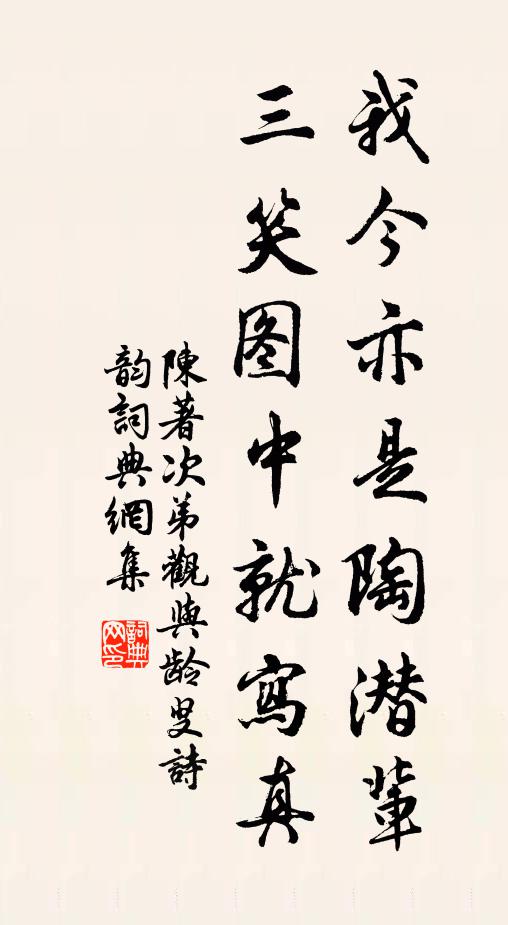 我今亦是陶潜輩
三笑图中就寫真
陳著次弟觀與龄叟詩
韵詞典網集
詞典网印